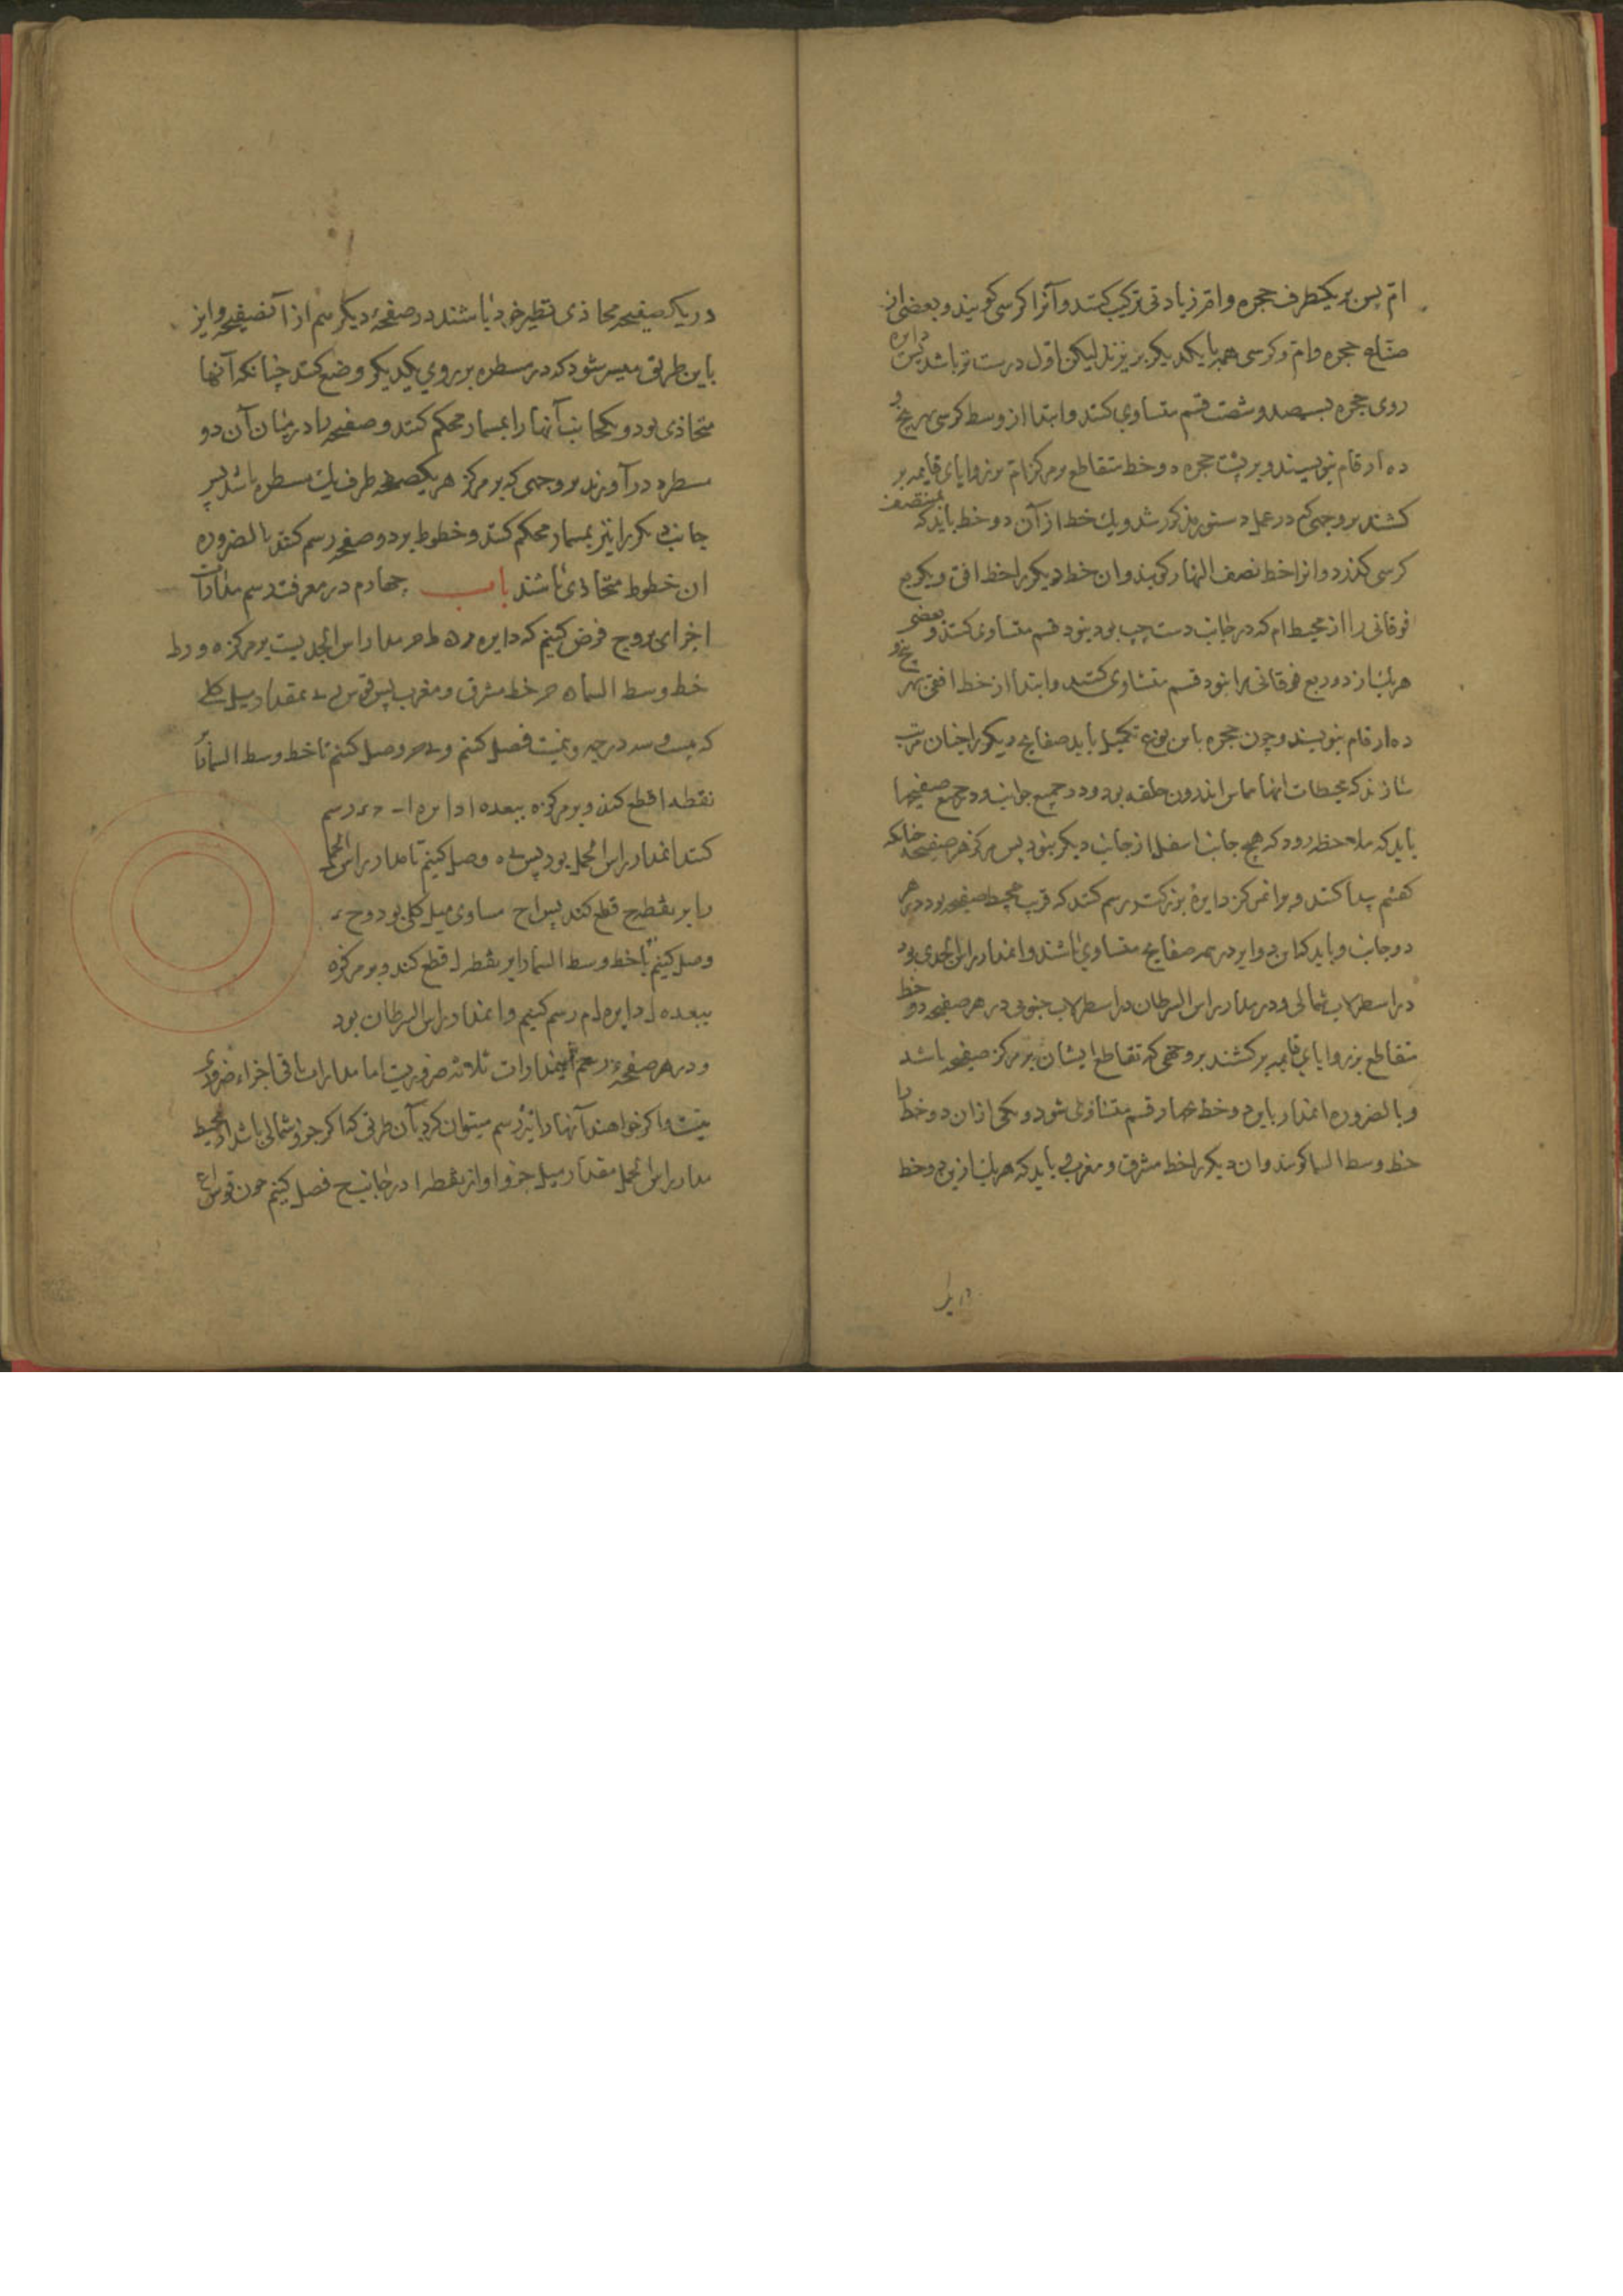 ام پس بر یکطرف حجره و ام زیادتی ترکیب کنند و آنرا کرسی کویند و بعضی از
صنّاع حجره و ام و کرسی همه با یکدیکر بریزند لیکن اول درست تر باشد پس دایره
روی حجره بسیصد و شصت قسم متساوی کنند و ابتدا از وسط کرسی بهر پنج و
ده ارقام بنویسند و بر پشت حجره دو خط متقاطع بر مرکز ام بر زوایای قایمه بر
کشند بر وجهی کم در عمل دستور مذکور شد و یک خط از آن دو خط باید که بمنتصف
کرسی کذرد و انرا خط نصف النهار کویند و ان خط دیکر را خط افق و یکربع
فوقانی را از محیط ام که در جانب دست چپ بود بنود قسم متساوی کنند و بعضی
هر یک از دو ربع فوقانی را بنود قسم متساوی کنند و ابتدا از خط افق بهر پنج و
ده ارقام بنویسند و چون حجره باین نوع تکمیل یابد صفایح دیکر را چنان مرتب
سازند که محیطات انها مماس اندرون حلقه بود و در جمیع جوانب و در جمیع صفیحها
باید که ملاحظه رود که هیچ جانب اسفل از جانب دیکر نبود پس مرکز هر صفیحه چنانکه
کفتم پیدا کنند و بر انمرکز دایرهٔ بزرکتر رسم کنند که قریب بمحیط صفیحه بود در هر
دو جانب و باید که این دوایر در همه صفایح متساوی باشند و انمدار راس الجدی بود
در اسطرلاب شمالی و در مدار راس السرطان در اسطرلاب جنوبی در هر صفیحه دو خط
متقاطع بر زوایای قایمه بر کشند بر وجهی که تقاطع ایشان بر مرکز صفیحه باشد
و بالضروره انمدار باین دو خط چهار قسم متساوی شود و یکی از ان دو خط را
خط وسط السما کویند و ان دیکر را خط مشرق و مغرب و باید که هر یک ازین دو خط
در یک صفیحه محاذی نظیر خود باشند در صفحهٔ دیکر هم از آنصفیحه و این
باین طریق میسر شود که در مسطره بر روی یکدیکر وضع کنند چنانکه آنها
متحاذی بود و یکجانب آنها را بمسمار محکم کنند و صفیحه را در میان آن دو
مسطره درآورند بر وجهی که بر مرکز هر یکصفحه طرف یک مسطره باشد پس
جانب دیکر را نیز بمسمار محکم کنند و خطوط بر دو صفحه رسم کنند بالضروره
ان خطوط متحاذی باشند باب چهارم در معرفت رسم مدارات
اجزای بروج فرض کنیم که دایره ر ه ط ح مدار راس الجدیست بر مرکز ه و ر ط
خط وسط السما ه ح خط مشرق و مغرب پس قوس بمقدار میل کلی
که بیست و سه درجه و نیمست فصل کنیم و وصل کنیم تا خط وسط السما را بر
نقطه ا قطع کند و بر مرکز ه ببعد ه ا دایره ا ب د رسم
کنند انمدار راس الحمل بود پس ه وصل کنیم تا مدار راس الحمل
را بر نقطه ح قطع کند پس ا ح مساوی میل کلی بود و ح
وصل کنیم تا خط وسط السما را بر نقطه ل قطع کند و بر مرکز ه
ببعد ه ل دایره ل م رسم کنیم و انمدار راس السرطان بود
و در هر صفحهٔ رسم اینمدارات ثلاثه ضروریست اما مدارات باقی اجزاء ضروری
نیست و اکر خواهند آنها را نیز رسم میتوان کرد بآن طریق که اکر جزو شمالی باشد از محیط
مدار راس الحمل مقدار میل جزو او از نقطه ا در جانب ح فصل کنیم چون قوس ا ع
در یک